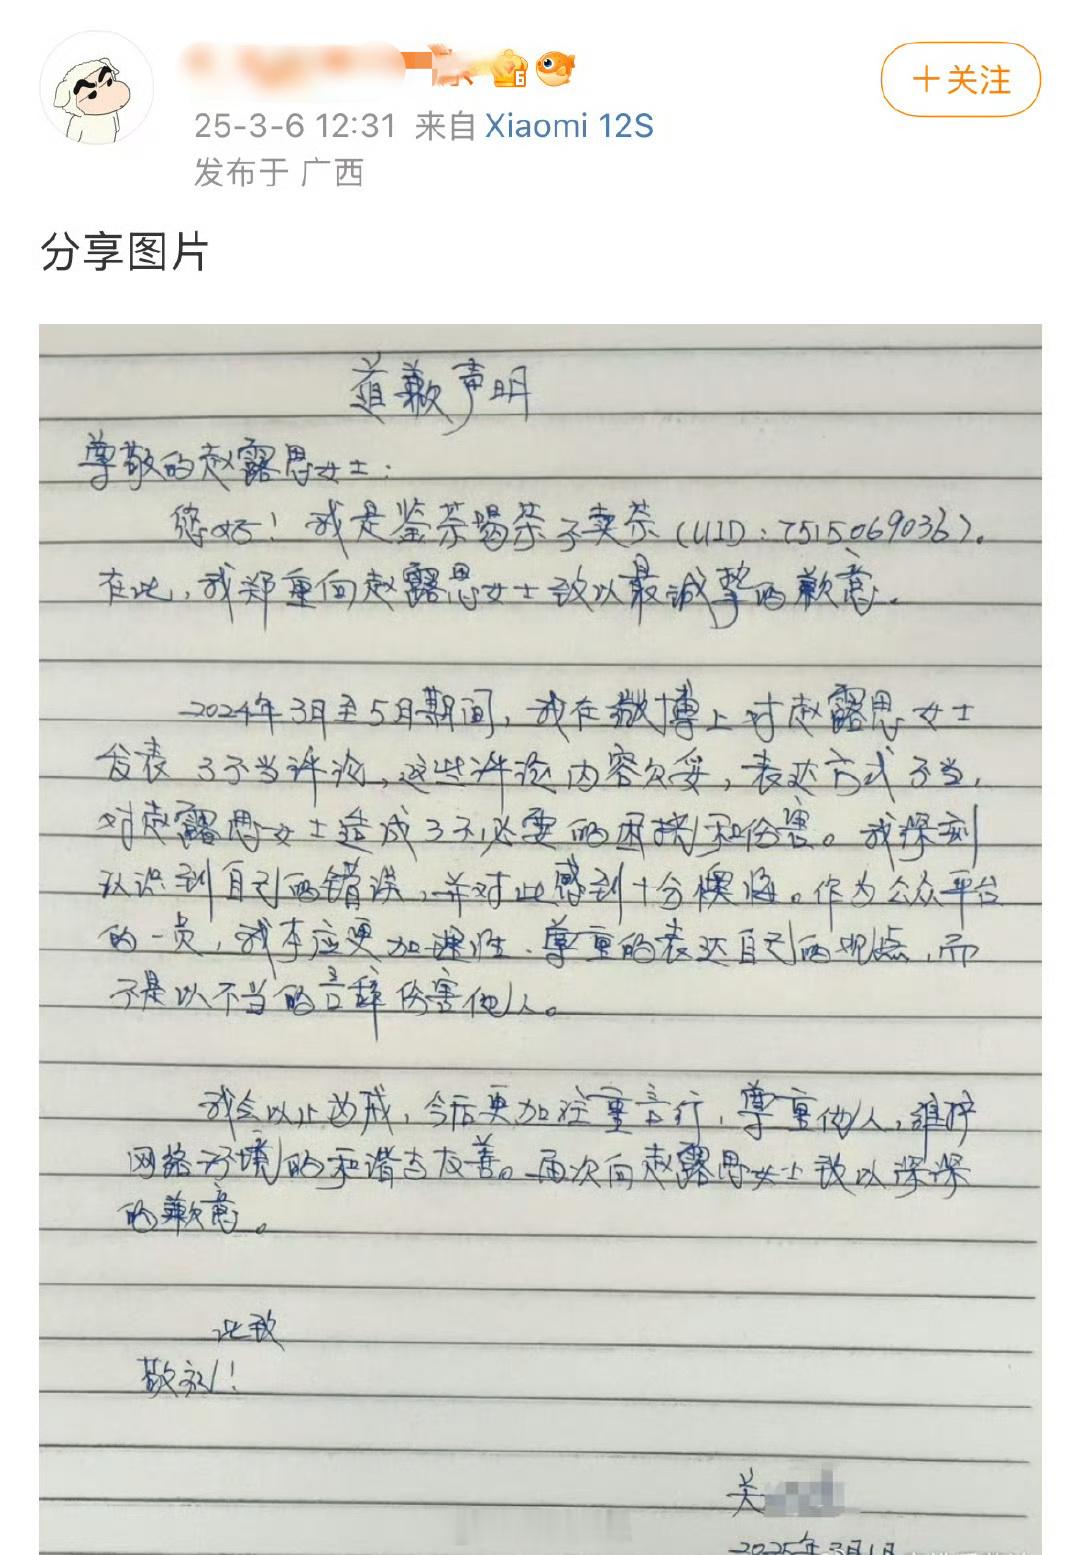 25-3-6 12:31 来自 Xiaomi 12S
+关注
发布于 广西
分享图片
道歉声明
尊敬的赵露思女士:
您好!我是鉴茶喝茶了卖茶(UID:7515069036)。
在此,我郑重向赵露思女士致以最诚挚的歉意。
2024年3月至5月期间,我在微博上对赵露思女士
发表了不当评论,这些评论内容欠妥,表达方式不当,
对赵露思女士造成了不必要的困扰和伤害。我深刻
认识到自己的错误,并对此感到十分懊悔。作为公众平台
的一员,我本应更加理性、尊重的表达自己的观点,而
不是以不当的言辞伤害他人。
我会以此为戒,今后更加注重言行,尊重他人,维护
网络环境的和谐与友善。再次向赵露思女士致以深深
的歉意。
此致
敬礼!
关
2025年3月1日